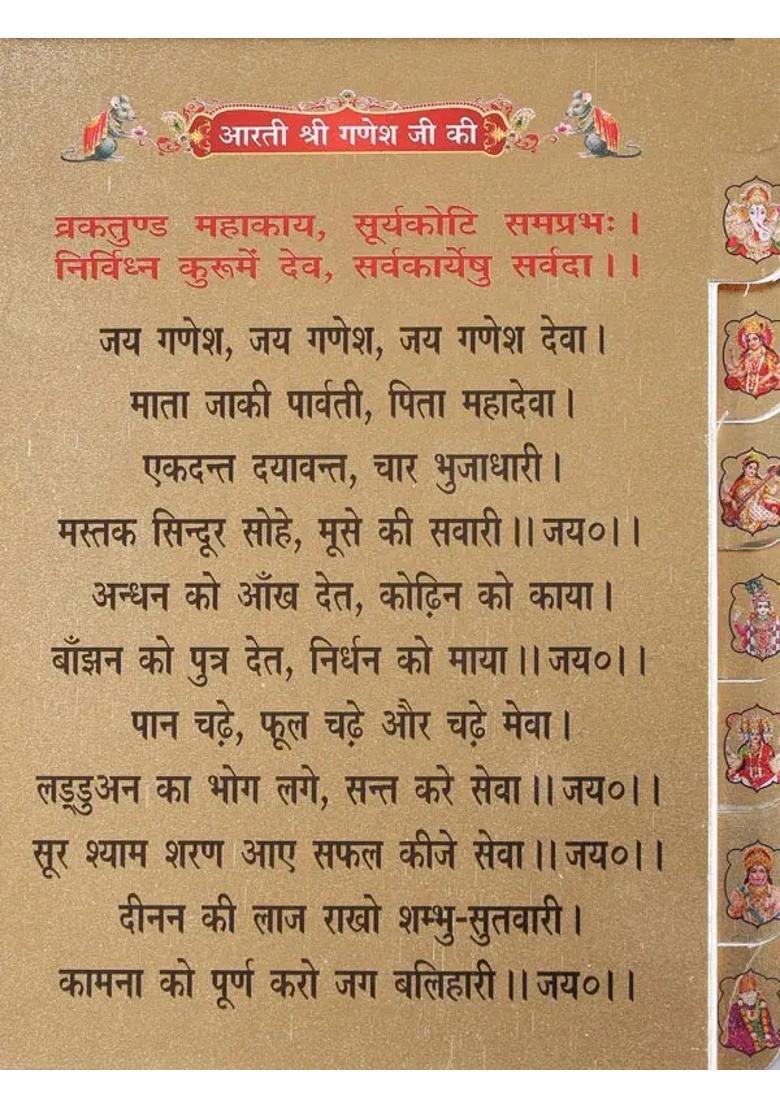 आरती श्री गणेश जी की
व्रकतुण्ड महाकाय, सूर्यकोटि समप्रभः।
निर्विध्न कुरूमें देव, सर्वकार्येषु सर्वदा।।
जय गणेश, जय गणेश, जय गणेश देवा।
माता जाकी पार्वती, पिता महादेवा।
एकदन्त दयावन्त, चार भुजाधारी।
मस्तक सिन्दूर सोहे, मूसे की सवारी।।जय०।।
अन्धन को आँख देत, कोढ़िन को काया।
बाँझन को पुत्र देत, निर्धन को माया।।जय०।।
पान चढ़े, फूल चढ़े और चढ़े मेवा।
लड्डुअन का भोग लगे, सन्त करे सेवा।।जय०।।
सूर श्याम शरण आए सफल कीजे सेवा।।जय०।।
दीनन की लाज राखो शम्भु-सुतवारी।
कामना को पूर्ण करो जग बलिहारी।।जय०।।